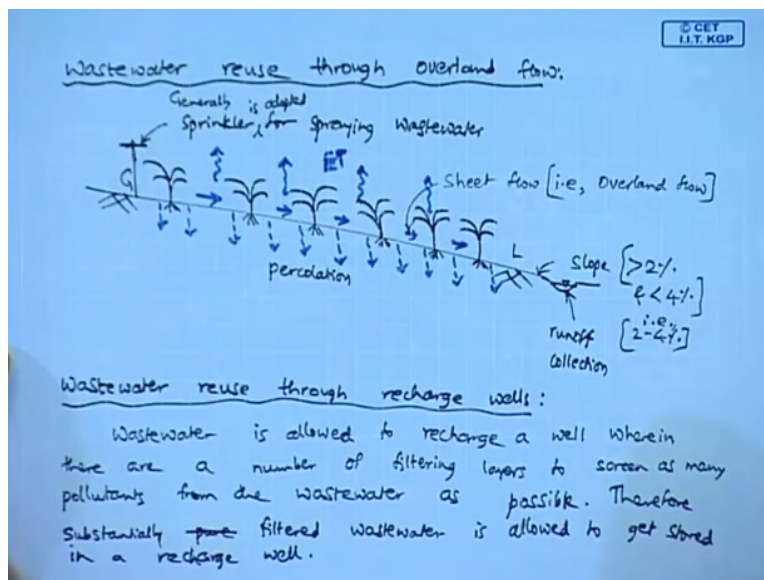 © CET
I.I.T. KGP
Wastewater reuse through overland flow:
Generally is adopted
Sprinkler, for spraying wastewater
ET
Sheet flow [i.e, Overland flow]
G
L
percolation
Slope [>2%.
& <4%.]
i.e.,
[2-4%.]
runoff
collection
Wastewater reuse through recharge wells:
Wastewater is allowed to recharge a well wherein
there are a number of filtering layers to screen as many
pollutants from the wastewater as possible. Therefore
Substantially pure filtered wastewater is allowed to get stored
in a recharge well.